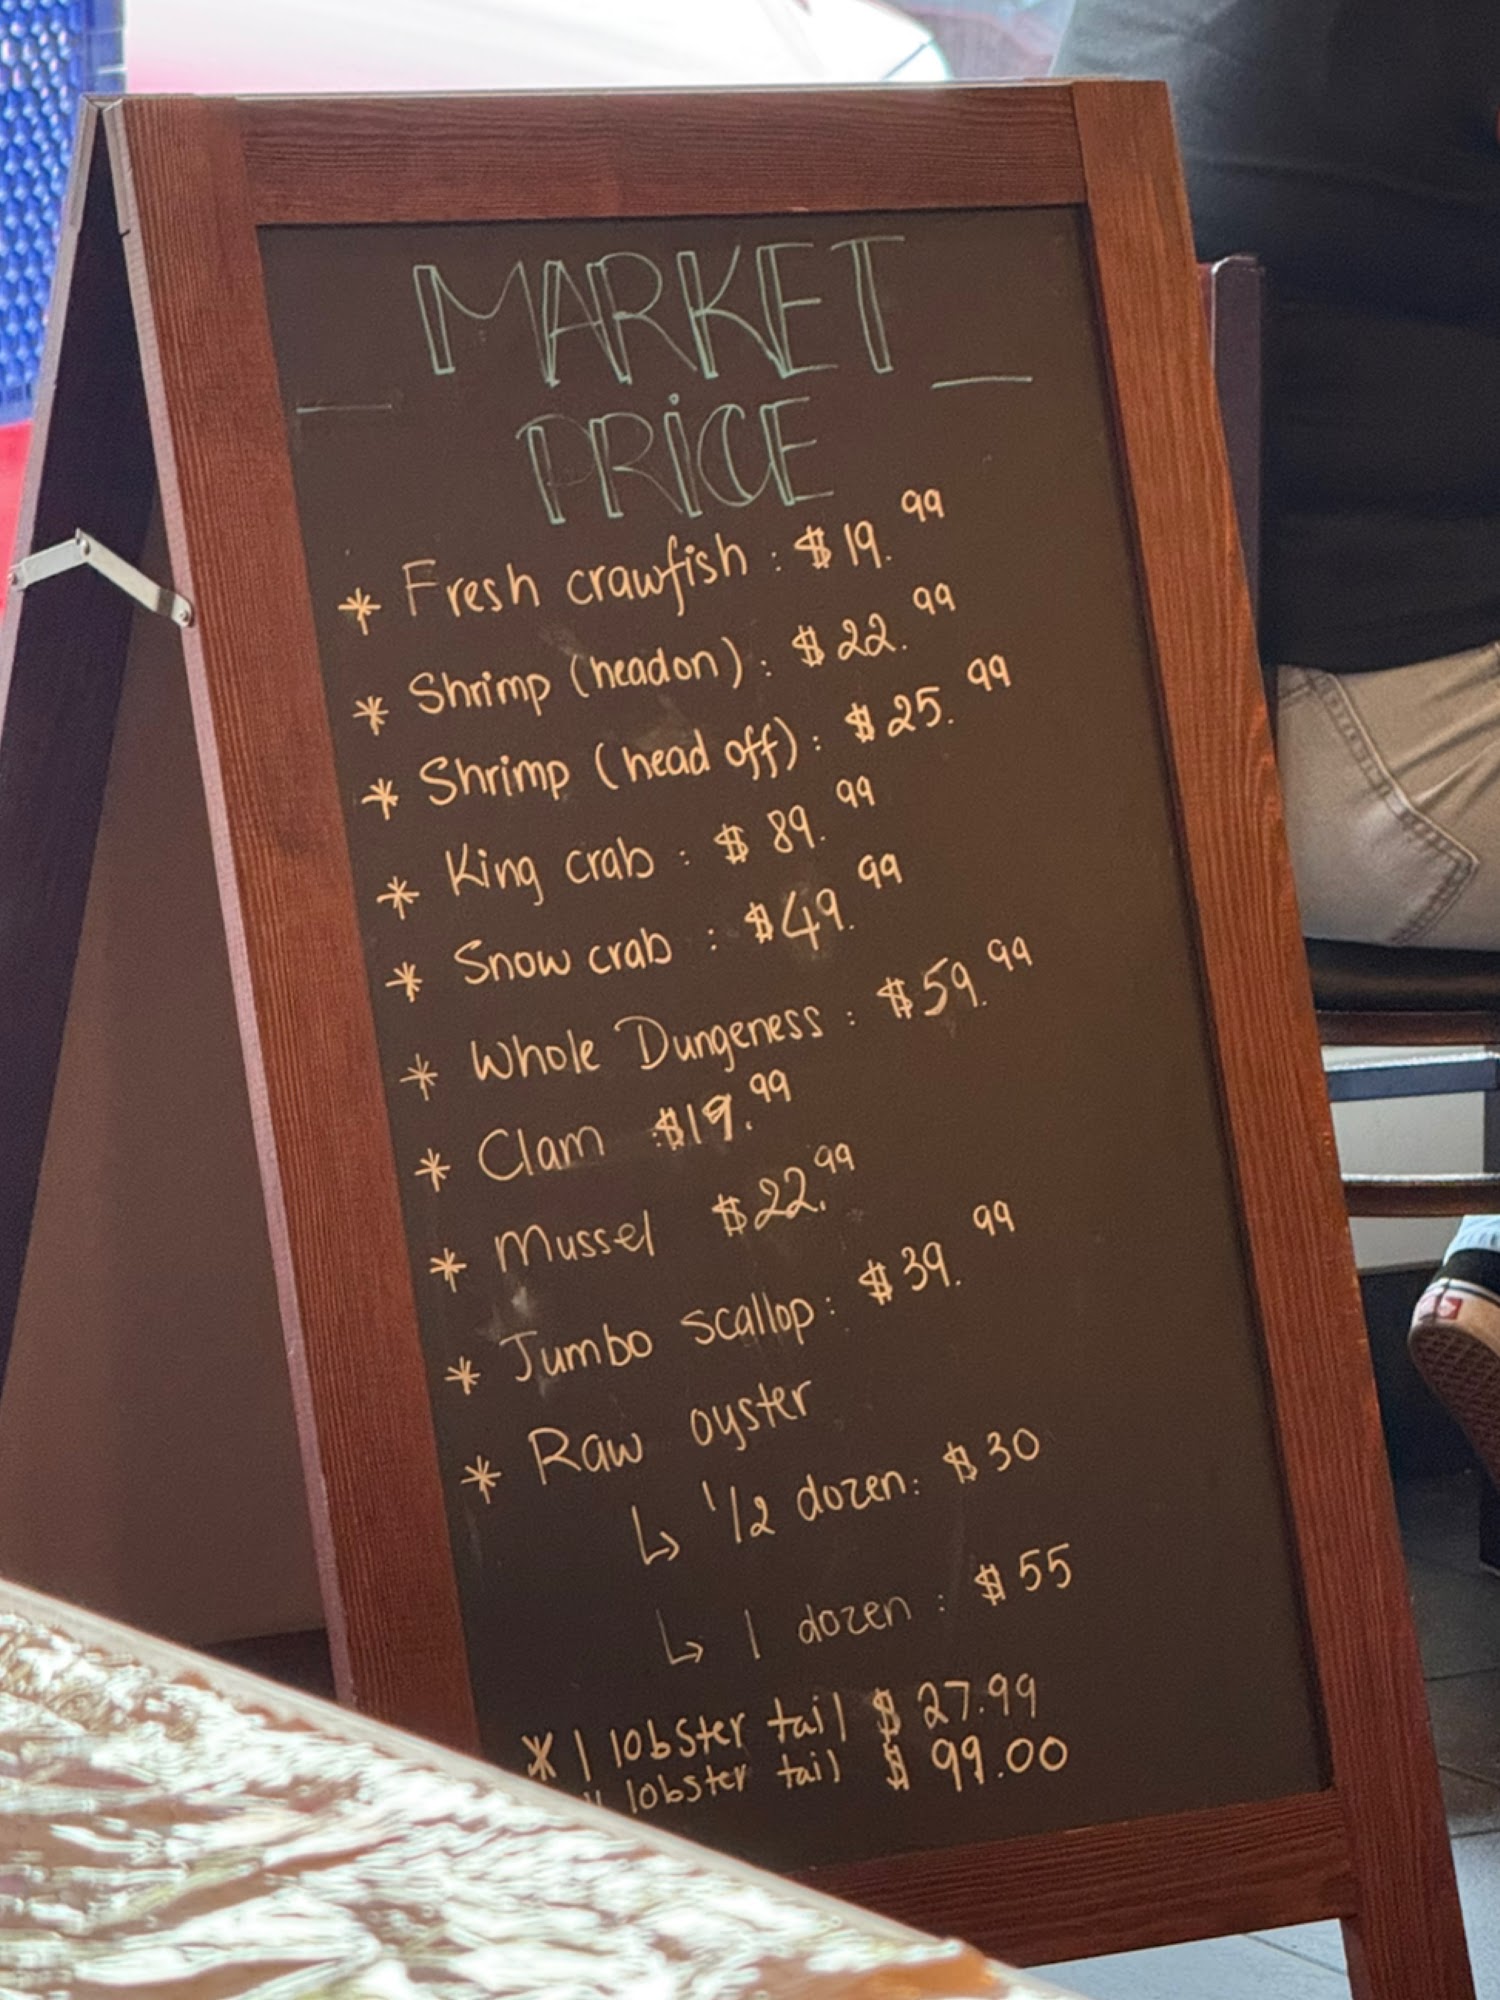 MARKET
PRICE
* Fresh crawfish : $19.99
* Shrimp (headon) : $22.99
* Shrimp (head off) : $25.99
* King crab : $89.99
* Snow crab : $49.99
* Whole Dungeness : $59.99
* Clam $19.99
* Mussel $22.99
* Jumbo scallop : $39.99
* Raw oyster
↳ 1/2 dozen : $30
↳ 1 dozen : $55
* 1 lobster tail $27.99
lobster tail $99.00